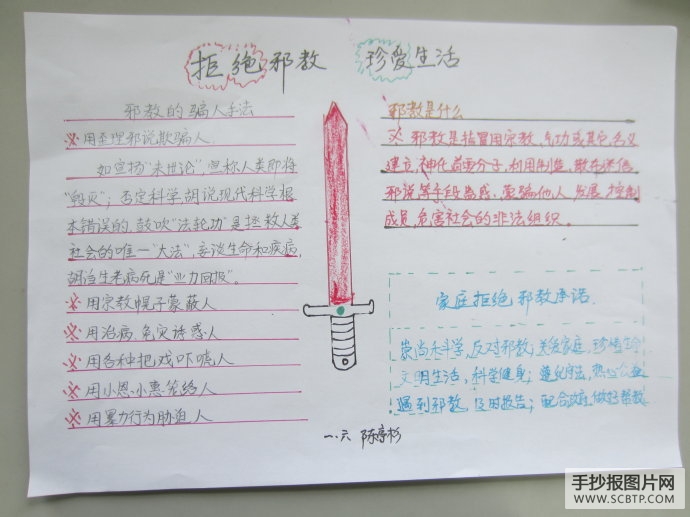 拒绝邪教 珍爱生活
邪教的骗人手法
※用歪理邪说欺骗人
如宣扬“末世论”,宣称人类即将
“毁灭”；否定科学,胡说现代科学根
本错误的,鼓吹“法轮功”是拯救人类
社会的唯一“大法”,妄谈生命和疾病,
胡诌生老病死是“业力回报”。
※用宗教幌子蒙蔽人
※用治病、免灾诱惑人
※用各种把戏吓唬人
※用小恩小惠笼络人
※用暴力行为胁迫人
邪教是什么
※邪教是指冒用宗教、气功或其它名义
建立,神化首要分子,利用制造、散布迷信
邪说等手段蛊惑、蒙骗他人,发展、控制
成员,危害社会的非法组织。
家庭拒绝邪教承诺
崇尚科学,反对邪教；关爱家庭,珍惜生命
文明生活,科学健身；遵纪守法,热心公益
遇到邪教,及时报告；配合政府,做好帮教
一.六 陈
手抄报图片网
WWW.SCBTP.COM